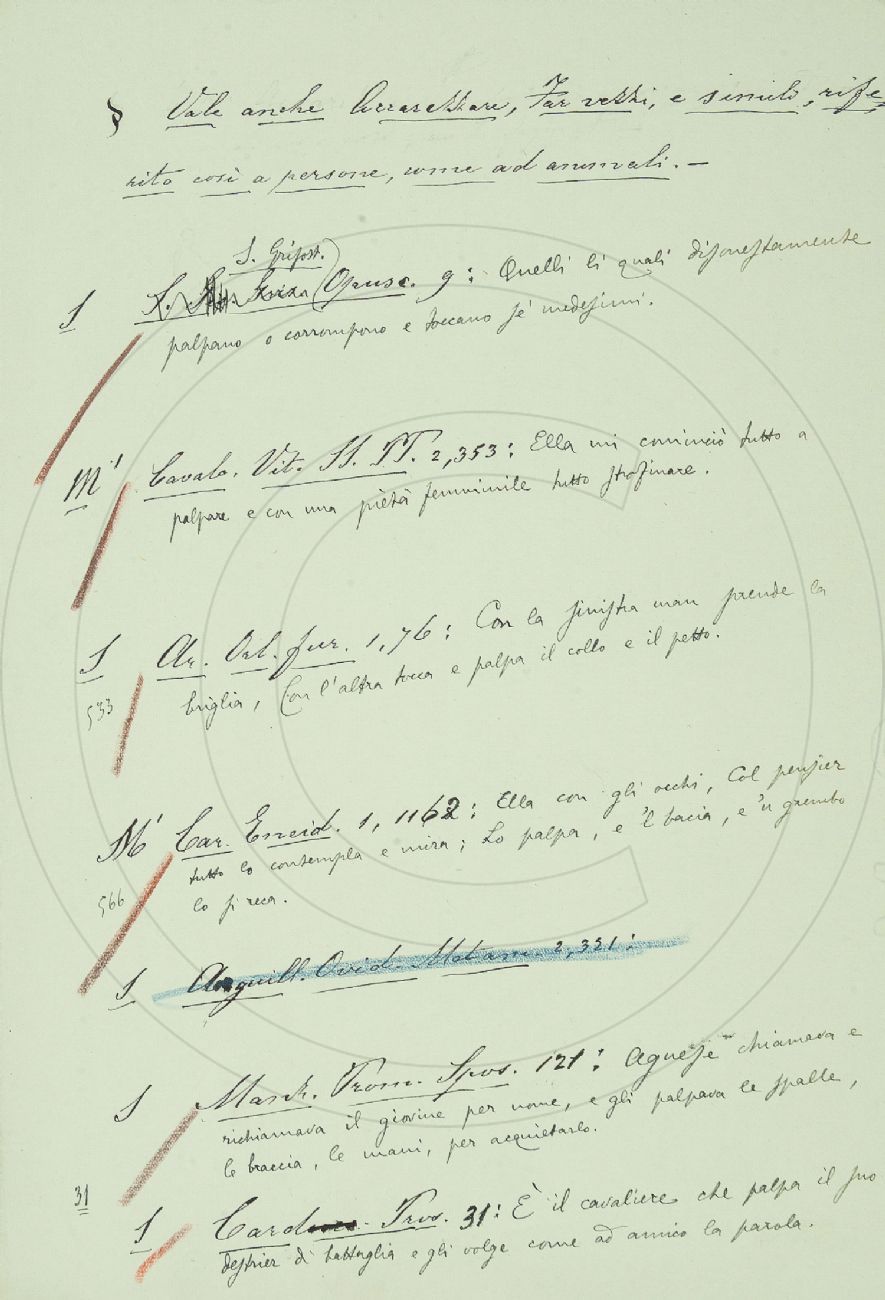 § Vale anche Accarezzare, Far vezzi, e simili, rife-
rito così a persone, come ad animali. —
S. Grisost.
S Opusc. 9: Quelli li quali disonestamente
palpano o corrompono e toccano sé medesimi.
M' Cavalc. Vit. SS. PP. 2,353: Ella mi cominciò tutto a
palpare e con una pietà femminile tutto strofinare.
S Ar. Orl. fur. 1,76: Con la sinistra man prende la
533 briglia, Con l'altra tocca e palpa il collo e il petto.
M' Car. Eneid. 1,1162: Ella con gli occhi, Col pensier
tutto lo contempla e mira; Lo palpa, e 'l bacia, e 'n grembo
566 lo si reca.
S Anguill. Ovid. Metam. 2,331:
S Manz. Prom. Spos. 121: Agnese chiamava e
richiamava il giovine per nome, e gli palpava le spalle,
le braccia, le mani, per acquietarlo.
31
S Card. Pros. 31: È il cavaliere che palpa il suo
destrier di battaglia e gli volge come ad amico la parola.